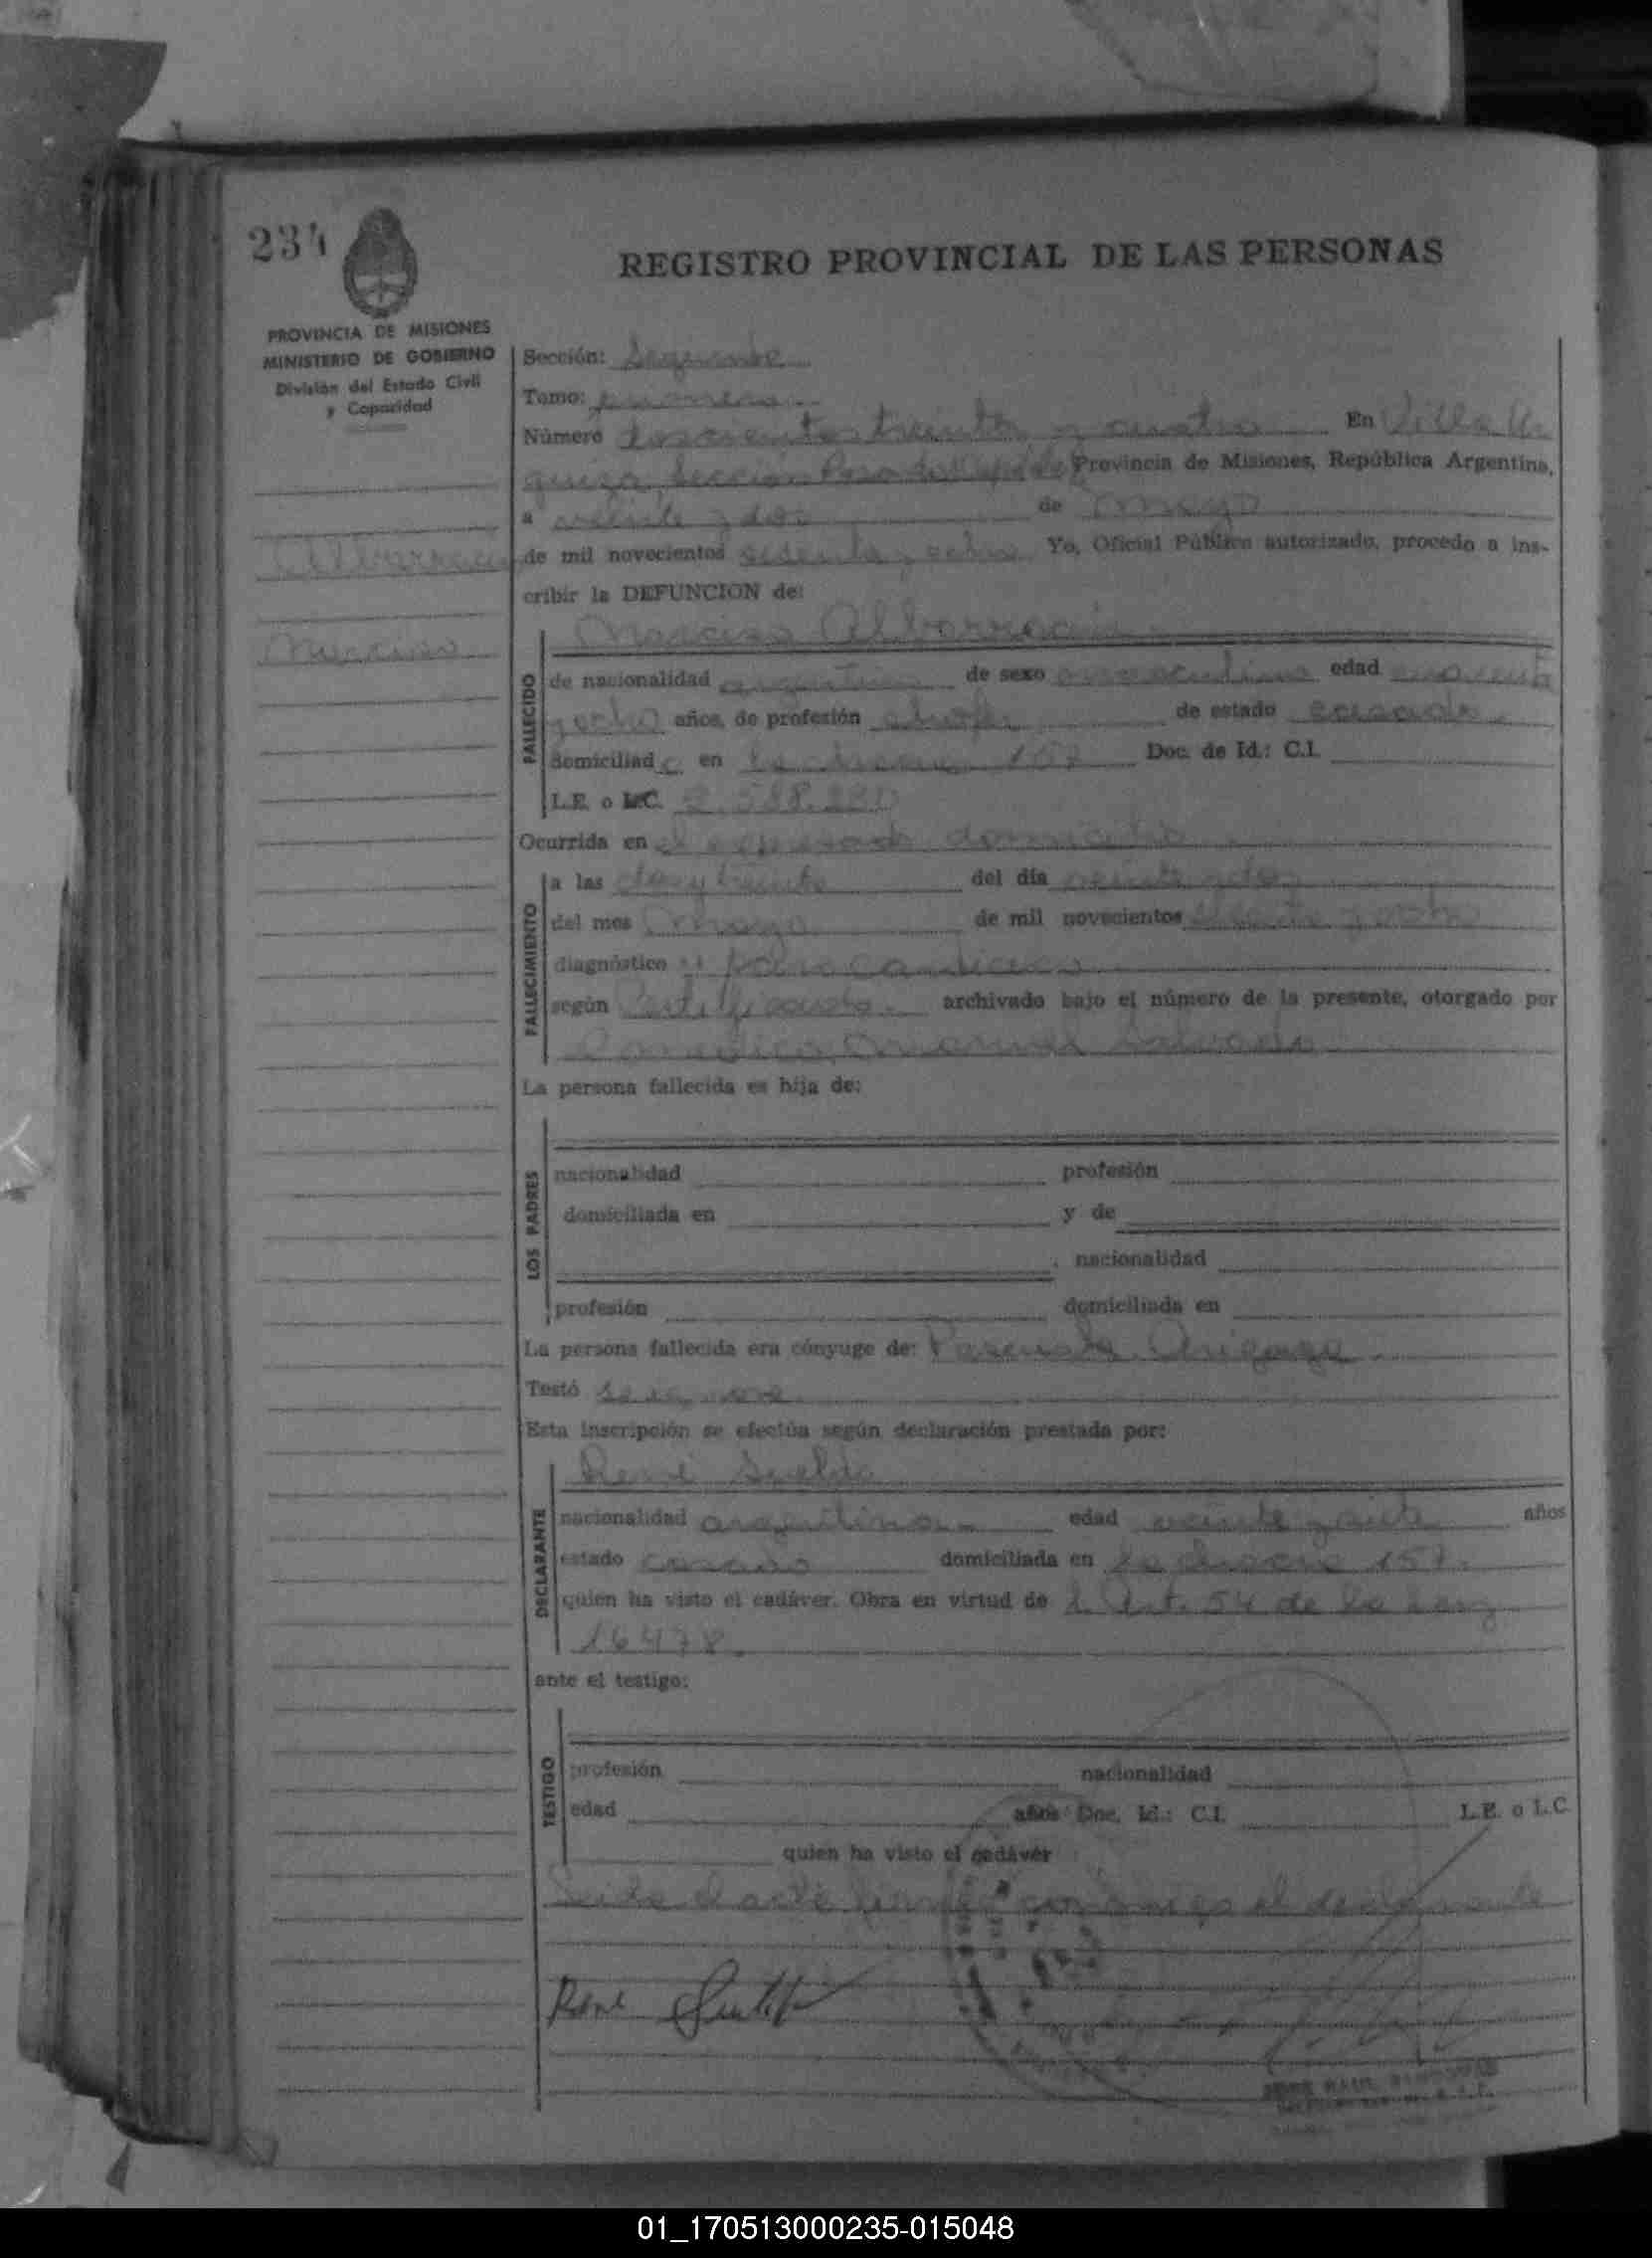 234
REGISTRO PROVINCIAL DE LAS PERSONAS
PROVINCIA DE MISIONES
MINISTERIO DE GOBIERNO
División del Estado Civil
y Capacidad
Albarracin
Narciso
Sección: Segunda
Tomo: primero
Número doscientos treinta y cuatro En Villa Ur
quiza, Sección Posadas Provincia de Misiones, República Argentina,
a veinte y dos de Mayo
de mil novecientos sesenta y ocho Yo, Oficial Público autorizado, procedo a ins-
cribir la DEFUNCION de:
Narciso Albarracin
FALLECIDO
de nacionalidad argentina de sexo masculino edad cuarenta
y ocho años, de profesión chofer de estado casado
domiciliad o en 157 Doc. de Id.: C.I.
L.E. o L.C.
Ocurrida en el expresado domicilio
FALLECIMIENTO
a las dos y treinta del día veinte y dos
del mes Mayo de mil novecientos sesenta y ocho
diagnóstico paro cardíaco
según Certificado archivado bajo el número de la presente, otorgado por
Manuel
La persona fallecida es hija de:
LOS PADRES
nacionalidad profesión
domiciliada en y de
nacionalidad
profesión domiciliada en
La persona fallecida era cónyuge de: Pascuala
Testó se ignora
Esta inscripción se efectúa según declaración prestada por:
René
DECLARANTE
nacionalidad argentina edad veinte y siete años
estado casado domiciliada en 157.
quien ha visto el cadáver. Obra en virtud de l Art. 54 de la Ley
16478.
ante el testigo:
TESTIGO
profesión nacionalidad
edad años Doc. Id.: C.I. L.E. o L.C.
quien ha visto el cadáver
Leida el acta firma conmigo el declarante
René
01_170513000235-015048